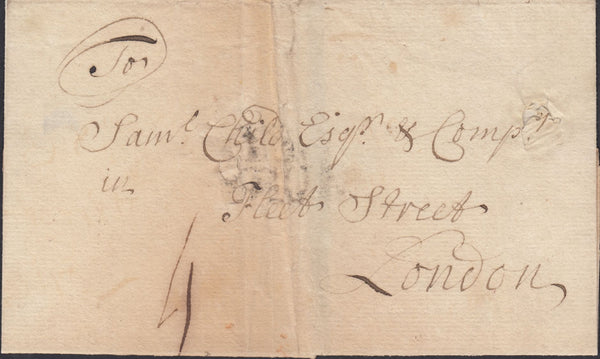 To
Saml. Child Esqr. & Compy.
in Fleet Street
London
4